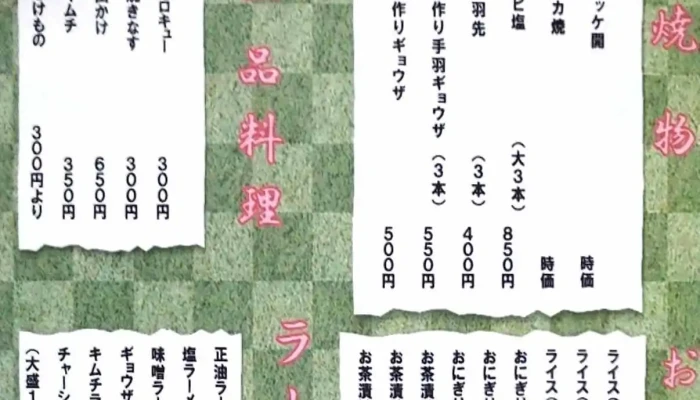 焼物
ッケ開 時価
カ焼 時価
ビ塩 (大3本) 850円
羽先 (3本) 400円
作り手羽ギョウザ (3本) 550円
作りギョウザ 500円
品料理
ロキュー 300円
焼きなす 300円
かけ 650円
ムチ 350円
けもの 300円より
お
ライス(
ライス(
ライス(
おにぎ
おにぎ
おにぎ
お茶漬
お茶漬
お茶漬
ラー
正油ラー
塩ラーメ
味噌ラー
ギョウザ
キムチラ
チャーシ
(大盛1